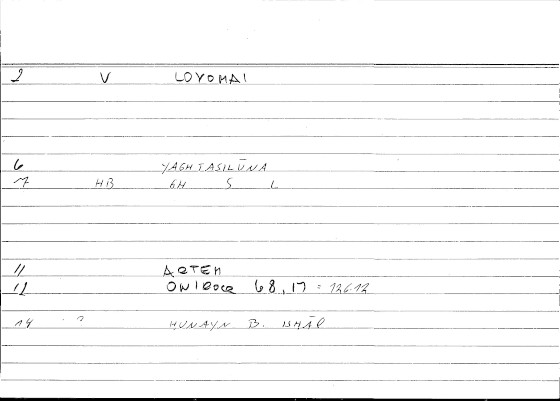 2 V LOYOMAI
6 YAGHTASILŪNA
7 HB GH S L
11 ARTEM
12 ONIROCR 68,17 = 126.12
14 HUNAYN B. ISHĀQ